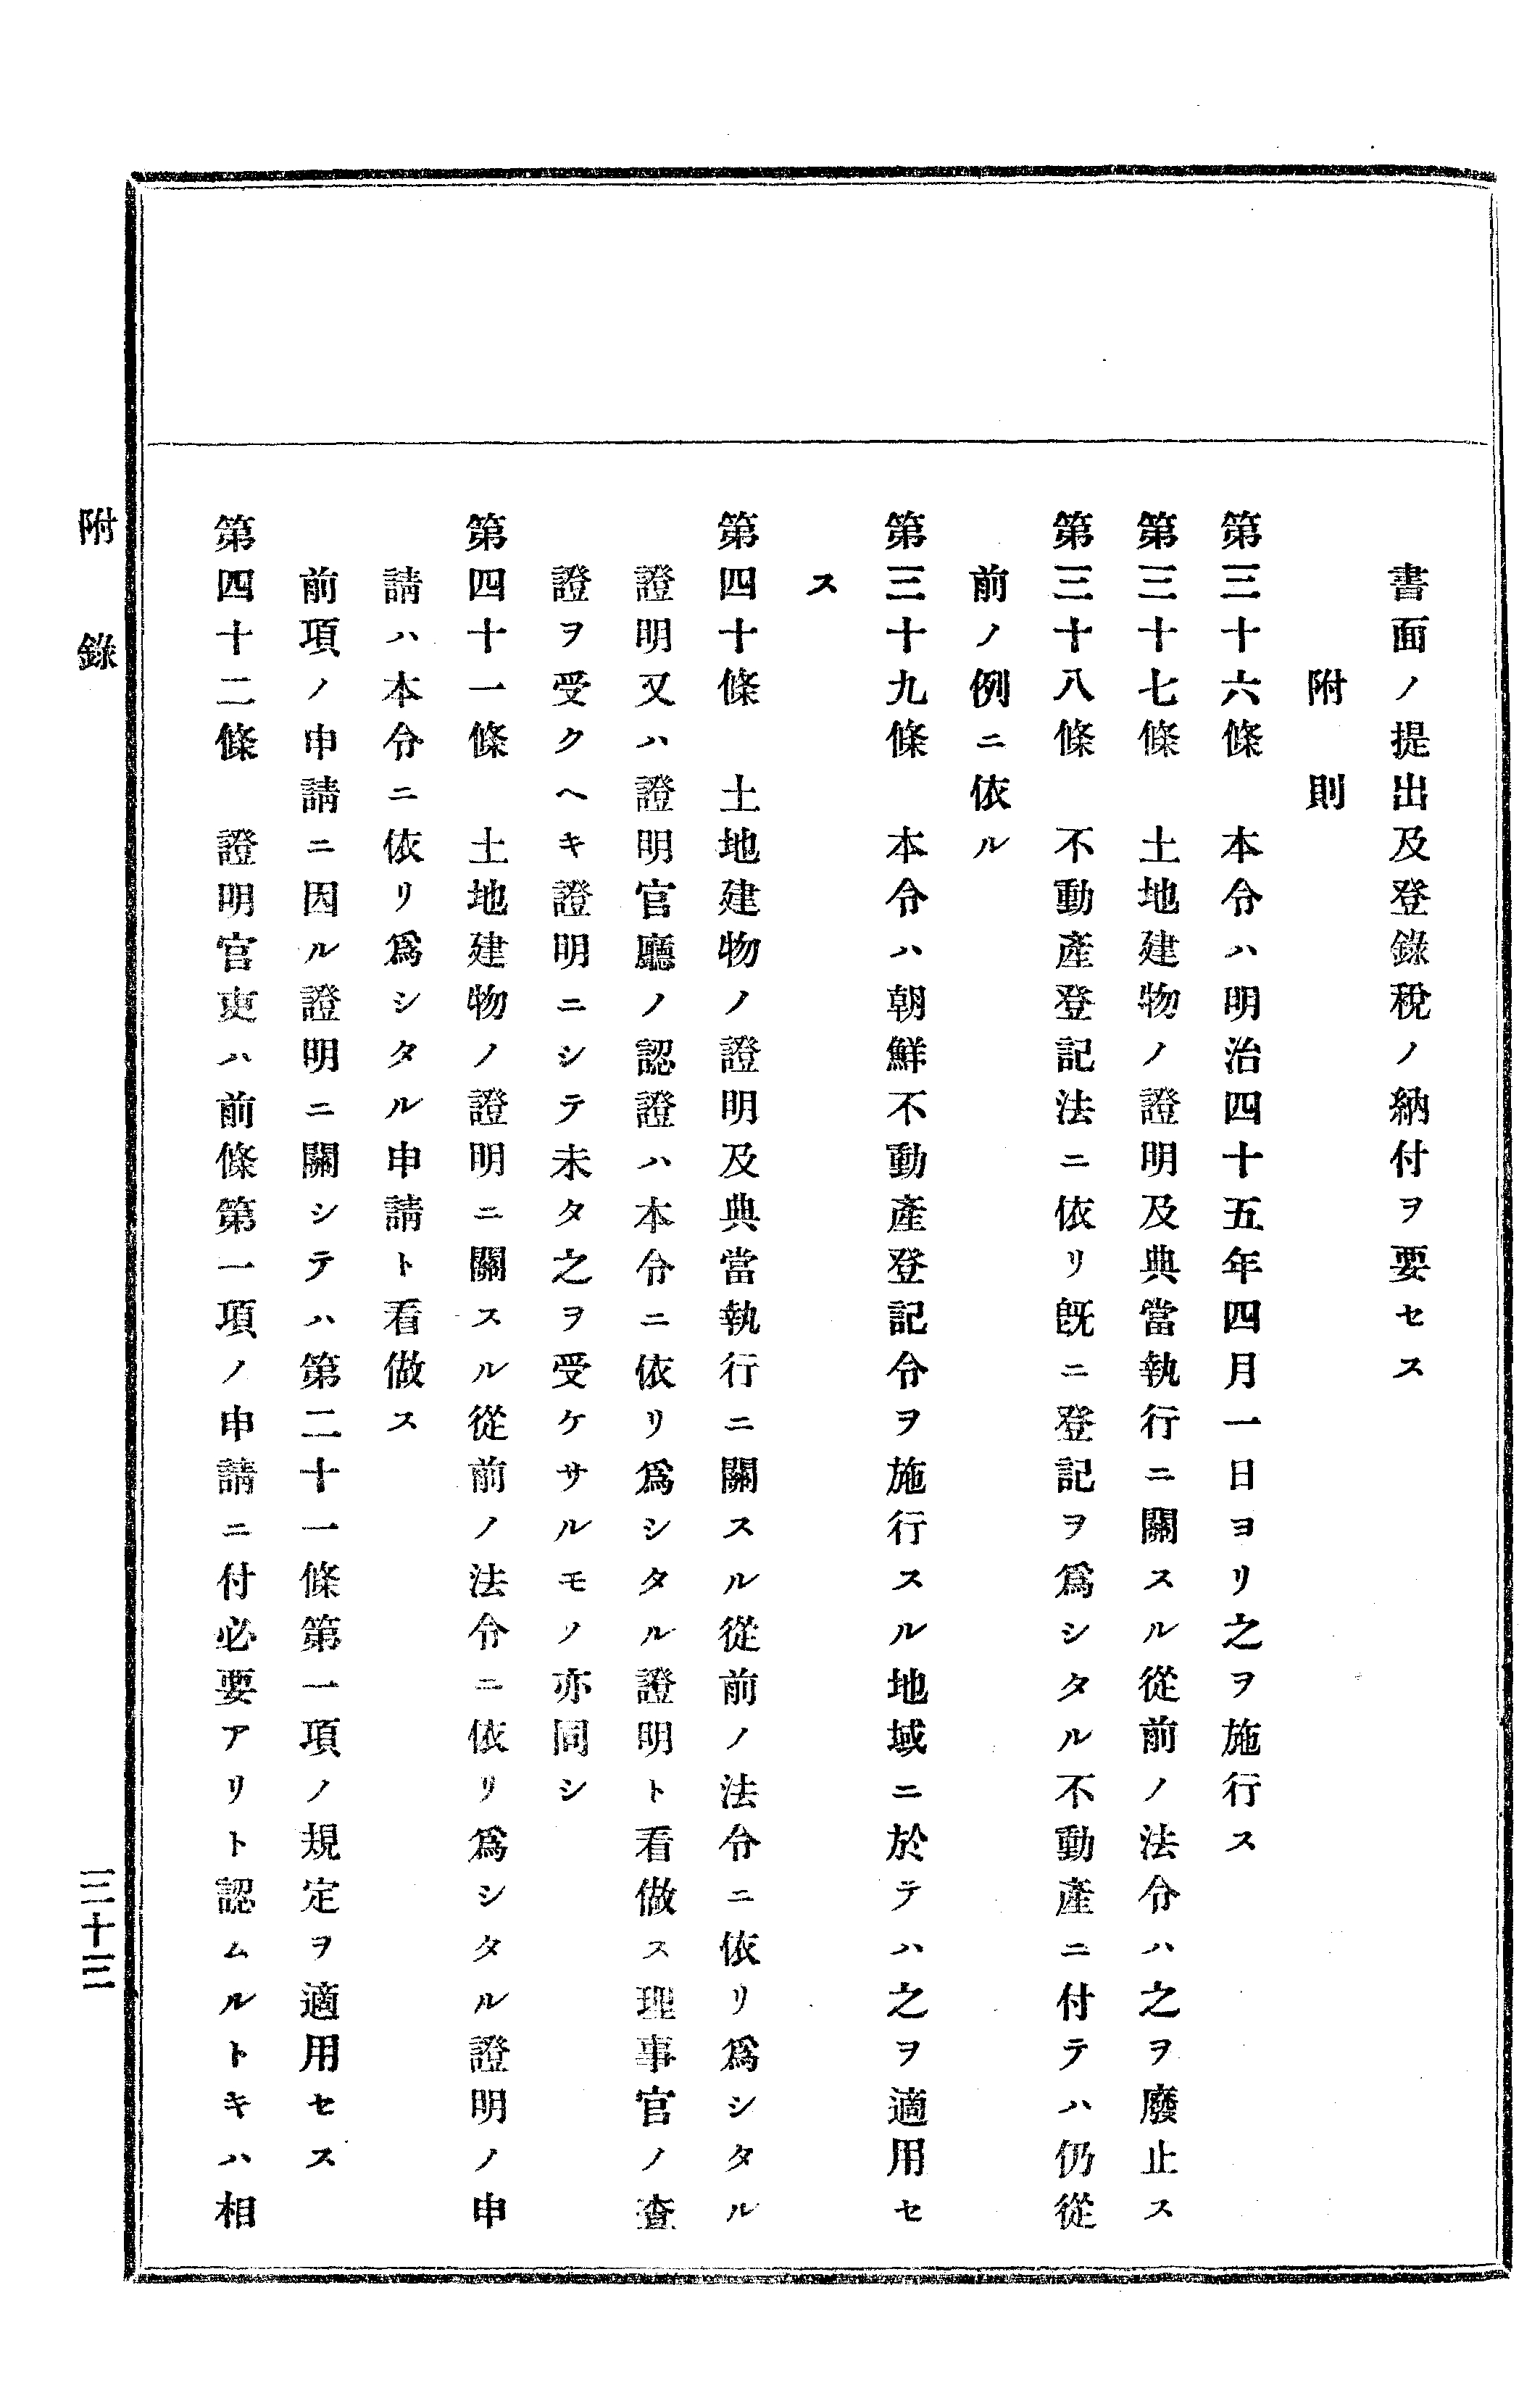 書面ノ提出及登錄稅ノ納付ヲ要セス
附則
第三十六條　本令ハ明治四十五年四月一日ヨリ之ヲ施行ス
第三十七條　土地建物ノ證明及典當執行ニ關スル從前ノ法令ハ之ヲ廢止ス
第三十八條　不動產登記法ニ依リ旣ニ登記ヲ爲シタル不動產ニ付テハ仍從
前ノ例ニ依ル
第三十九條　本令ハ朝鮮不動產登記令ヲ施行スル地域ニ於テハ之ヲ適用セ
ス
第四十條　土地建物ノ證明及典當執行ニ關スル從前ノ法令ニ依リ爲シタル
證明又ハ證明官廳ノ認證ハ本令ニ依リ爲シタル證明ト看做ス理事官ノ查
證ヲ受クヘキ證明ニシテ未タ之ヲ受ケサルモノ亦同シ
第四十一條　土地建物ノ證明ニ關スル從前ノ法令ニ依リ爲シタル證明ノ申
請ハ本令ニ依リ爲シタル申請ト看做ス
前項ノ申請ニ因ル證明ニ關シテハ第二十一條第一項ノ規定ヲ適用セス
第四十二條　證明官吏ハ前條第一項ノ申請ニ付必要アリト認ムルトキハ相
附錄
三十三